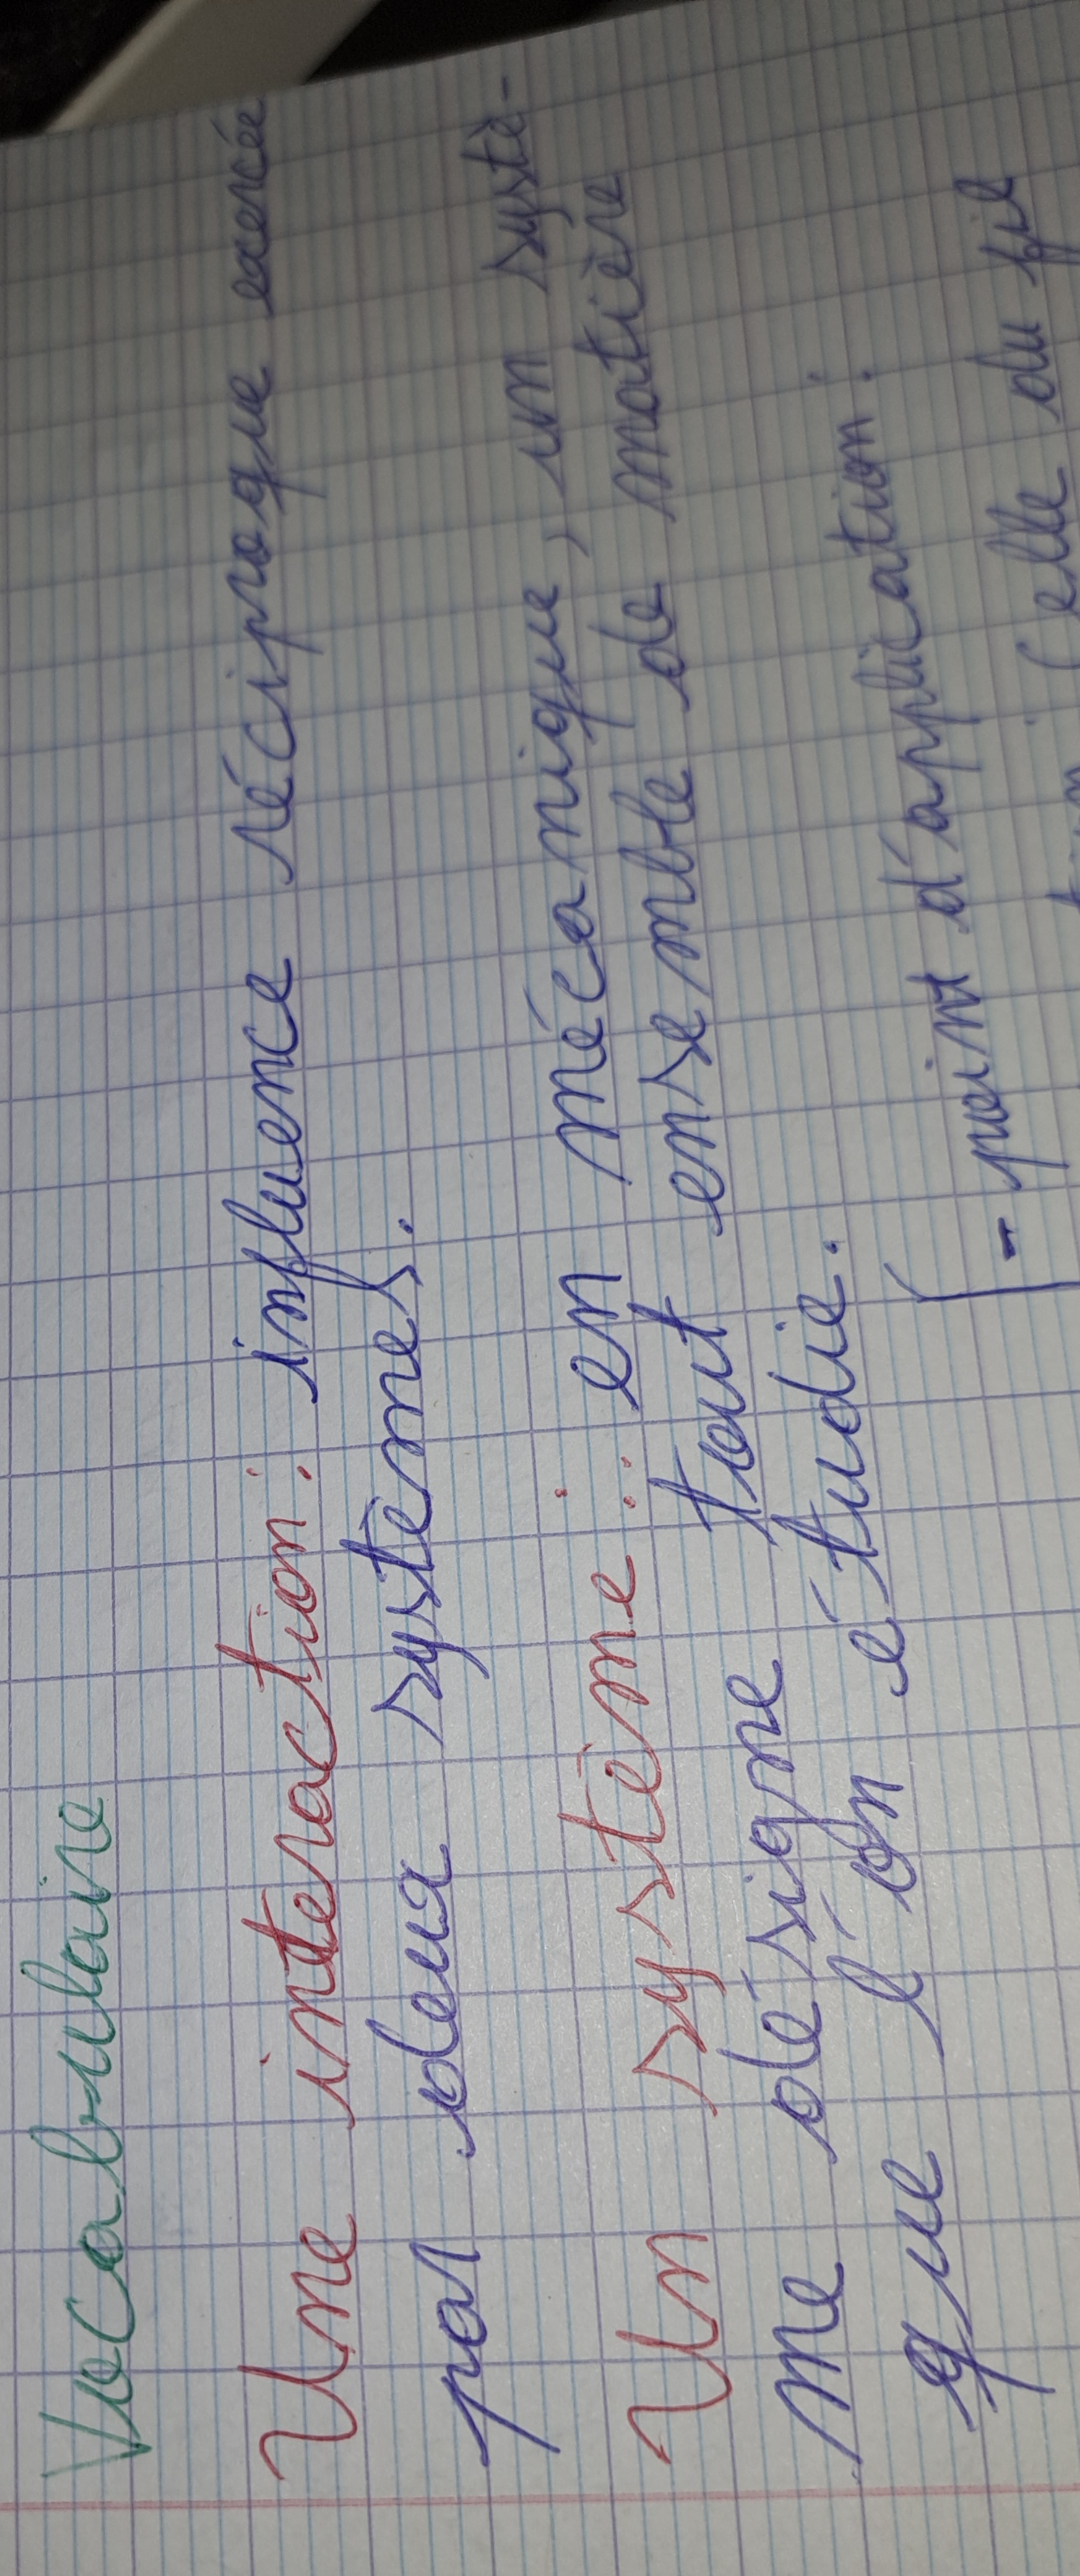 Vocabulaire
Une interaction : influence réciproque exercée
par deux systèmes.
Un système : en mécanique, un systè-
me désigne tout ensemble de matière
que l'on étudie.
- point d'application :
(elle du fil